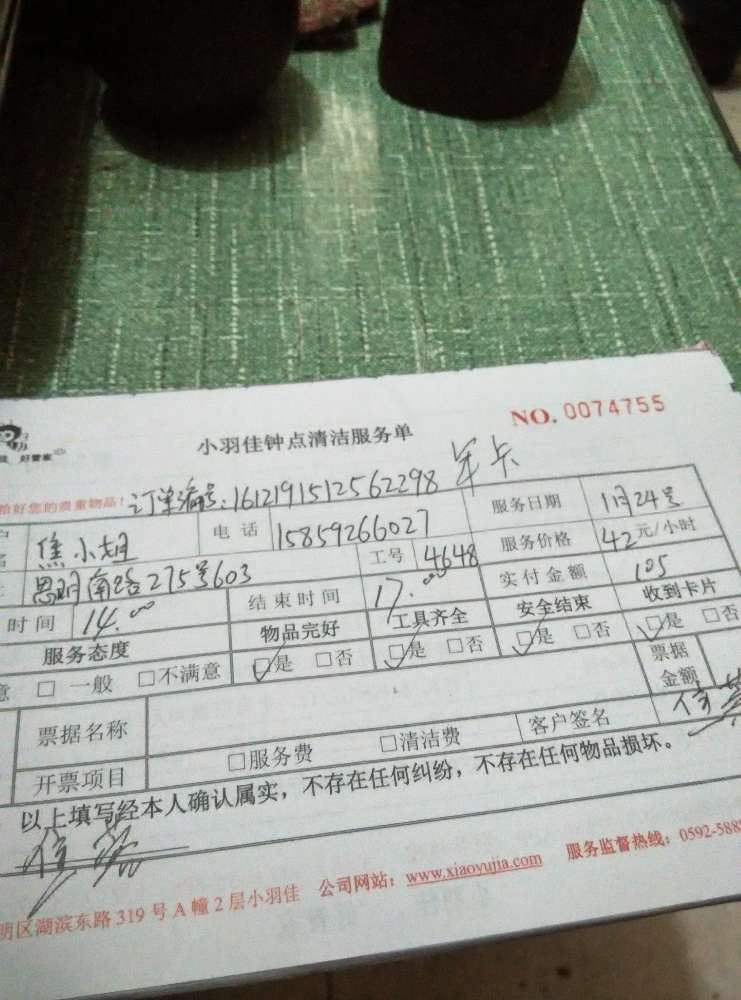 NO. 0074755
小羽佳钟点清洁服务单
好管家
您的贵重物品! 订单编号:1612191512562298 年卡
焦小姐 电话 15859266027 服务日期 11月24号
思明南路275号603 工号 4648 服务价格 42元/小时
时间 14.00 结束时间 17.00 实付金额 105
服务态度 物品完好 工具齐全 安全结束 收到卡片
意 □一般 □不满意 ☑是 □否 ☑是 □否 ☑是 □否 ☑是 □否
票据名称 票据金额
开票项目 □服务费 □清洁费 客户签名
以上填写经本人确认属实，不存在任何纠纷，不存在任何物品损坏。
明区湖滨东路319号A幢2层小羽佳 公司网站：www.xiaoyujia.com 服务监督热线：0592-588